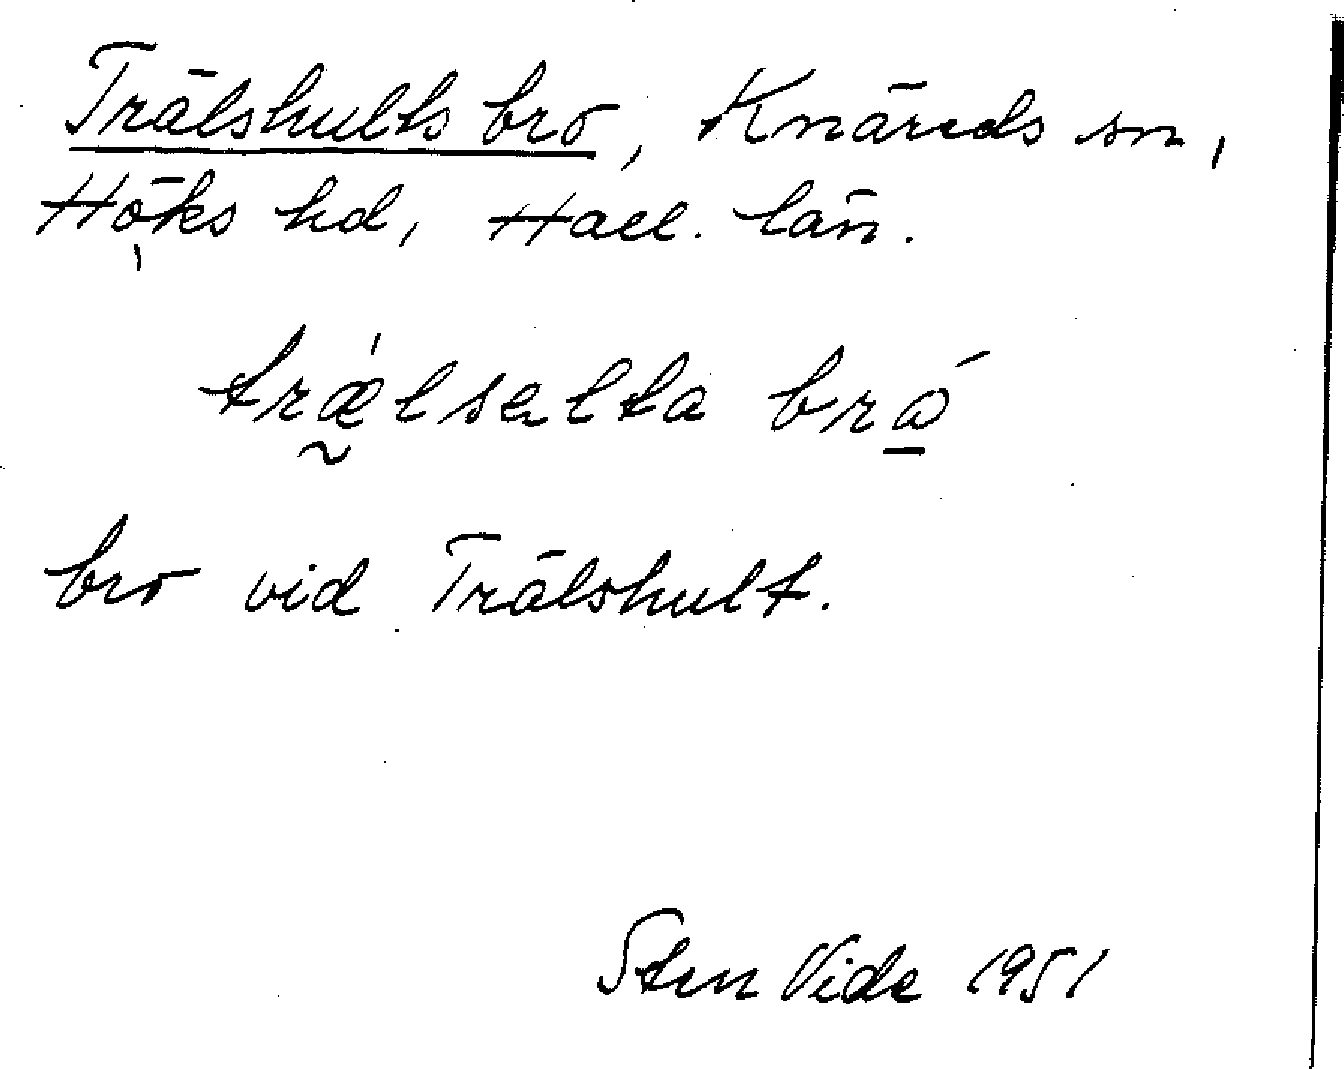 Trälshults bro, Knäreds sn,
Höks hd, Hall. län.
trǽlsəlta bró
bro vid Trälshult.
Sten Vide 1951